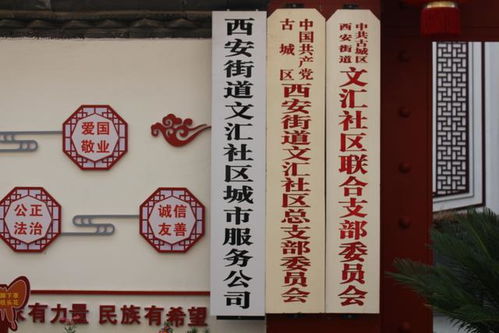 爱国
敬业
公正
法治
诚信
友善
家有力量 民族有希望
西安街道文汇社区城市服务公司
中国共产党
古城区
西安街道文汇社区总支部委员会
中共古城区
西安街道
文汇社区联合支部委员会